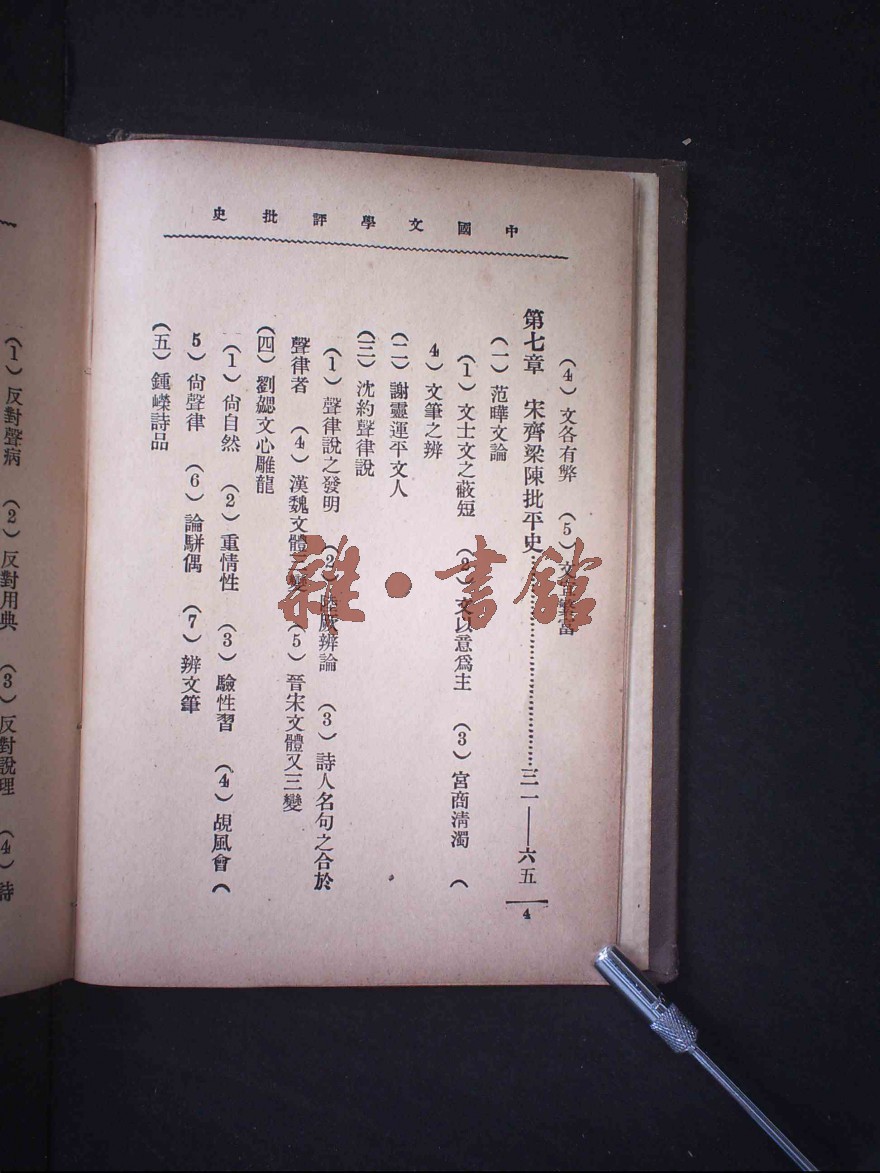 中國文學評批史
(4)文各有弊 (5)文
第七章 宋齊梁陳批平史……三一——六五
4
(一)范曄文論
(1)文士文之蔽短 (2)文以意爲主 (3)宮商淸濁 (
4)文筆之辨
(二)謝靈運平文人
(三)沈約聲律說
(1)聲律說之發明 (2)陸厥辨論 (3)詩人名句之合於
聲律者 (4)漢魏文體三變 (5)晉宋文體又三變
(四)劉勰文心雕龍
(1)尙自然 (2)重情性 (3)驗性習 (4)覘風會 (
5)尙聲律 (6)論駢偶 (7)辨文筆
(五)鍾嶸詩品
(1)反對聲病 (2)反對用典 (3)反對說理 (4)詩
雜·書館